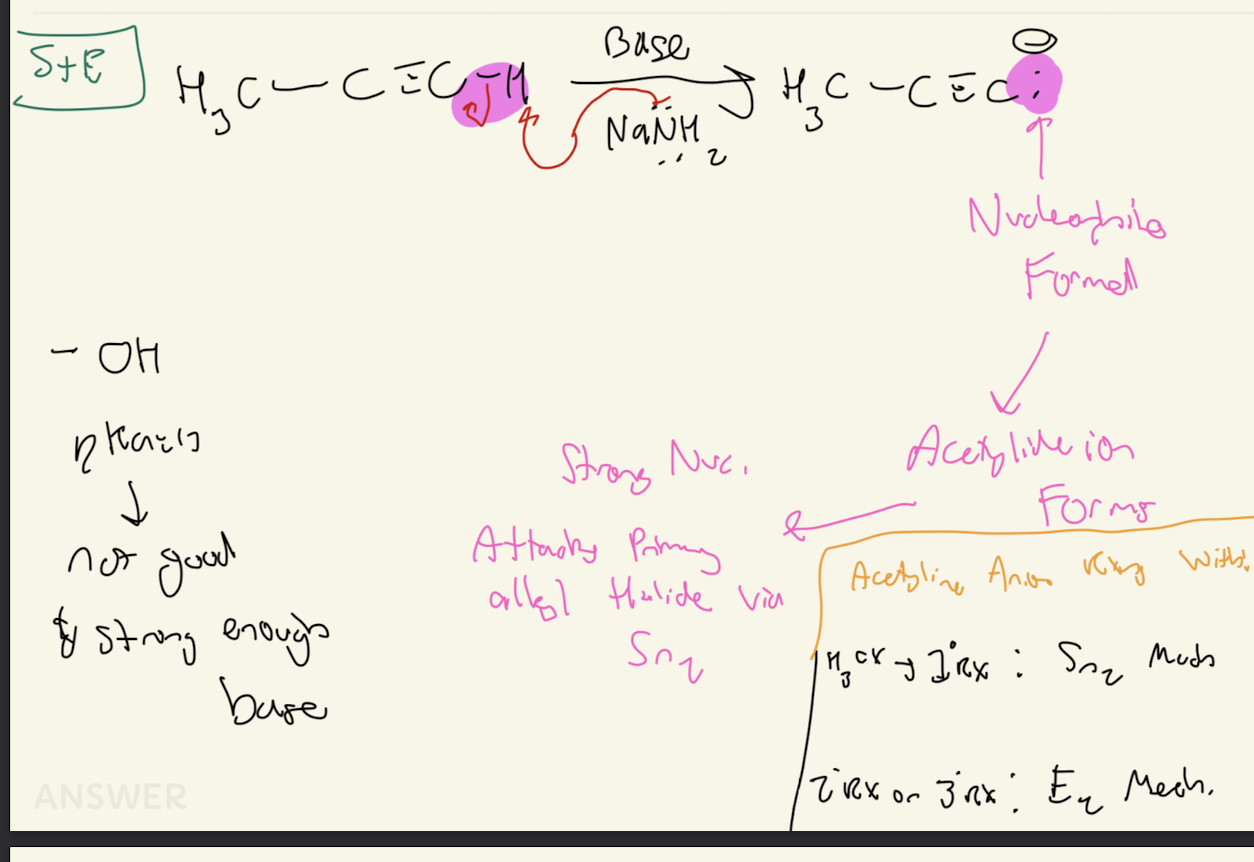 S+E
H3C — C≡C-H
Base
NaNH2
H3C - C≡C:
⊖
Nucleophile
Formed
Acetylide ion
Forms
Strong Nuc.
Attacks Primary
alkyl Halide via
Sn2
- OH
not good
strong enough
base
Acetyline Anion Rxng With:
H3CX → 1°RX : Sn2 Mech
2°RX or 3°RX : E2 Mech.
ANSWER